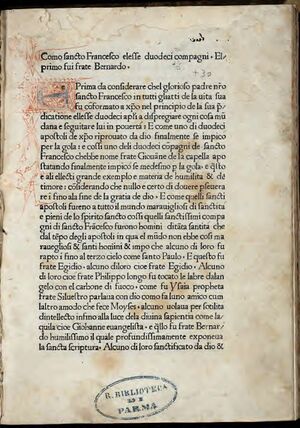 Como sancto Francesco elesse duodeci compagni. El
primo fui frate Bernardo.
Prima da considerare chel glorioso padre nr̄o
sancto Francesco in tutti gli atti de la uita sua
fu cōformato a xp̄o nel principio de la sua p̄
dicatione elesse duodeci apl̄i a dispregiare ogni cosa mū
dana e seguitare lui in pouertà: E como uno di duodeci
apostoli de xp̄o riprouato da dio finalmente se impico
per la gola: e cossi uno deli duodeci cōpagni de sancto
Francesco chebbe nome frate Giouāne de la capella apo
statando finalmente impico se medesimo p la gola. e q̄sto
e ali electi grande exemplo e materia de humilita &
timore: cōsiderando che nullo e certo di douere pseuera
re i fino ala fine de la gratia de dio: E come quelli sancti
apostoli fureno a tutto el mondo marauigliosi di sanctita
e pieni de lo spirito sancto cossi quelli sanctissimi compa
gni di sancto Frācesco furono homini di tāta sanctita che
dal tēpo degli apostoli in qua el mūdo non ebbe cosi ma
raueglosi & santi homini & impo che alcuno di loro fu
rapto i fino al terzo cielo como santo Paulo: E questo fu
frate Egidio: alcuno di loro cioe frate Egidio. Alcuno
di loro cioe frate Philippo longo fu tocato le labre dalan
gelo con el carbone di fuoco. como fu Ysaia propheta
frate Siluestro parlaua con dio como fa luno amico cum
laltro amodo che fece Moyses. alcuno uolaua per sotilita
dintellecto infino alla luce dela diuina sapientia como la
quila cioe Giohanne euangelista. e q̄sto fu frate Bernar
do humilissimo il quale profundissimamente exponeua
la sancta scriptura. Alcuno di loro sanctificato da dio &
R. BIBLIOTECA
DI
PARMA